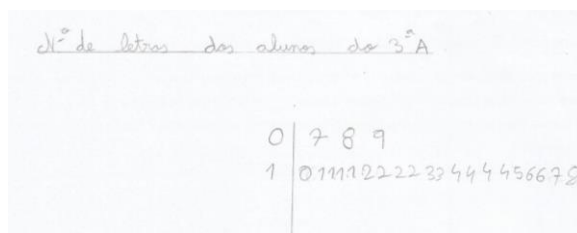 Nº de letras dos alunos do 3ºA
0 | 7 8 9
1 | 0 1 1 1 1 2 2 2 2 3 3 4 4 4 4 5 6 6 7 8